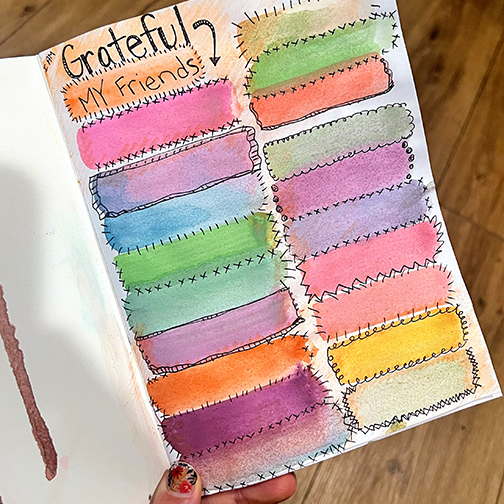 I AM
Grateful
MY FRiendS